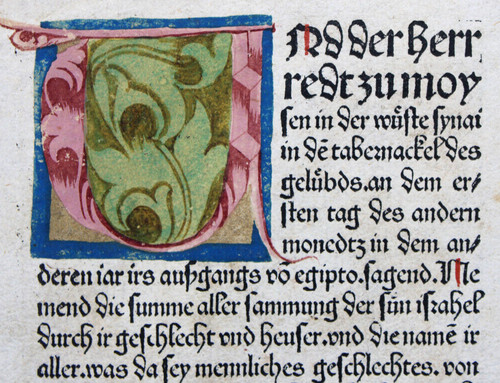 UNd der herr
redt zu moy
sen in der wůste synai
in dē tabernackel des
gelübds. an dem er⸗
sten tag des andern
monedtz in dem an⸗
deren iar irs auszgangs vō egipto. sagend. Ne
mend die summe aller sammung der sün israhel
durch ir geschlecht vnd heuser. vnd die namē ir
aller. was da sey mennliches geschlechtes. von